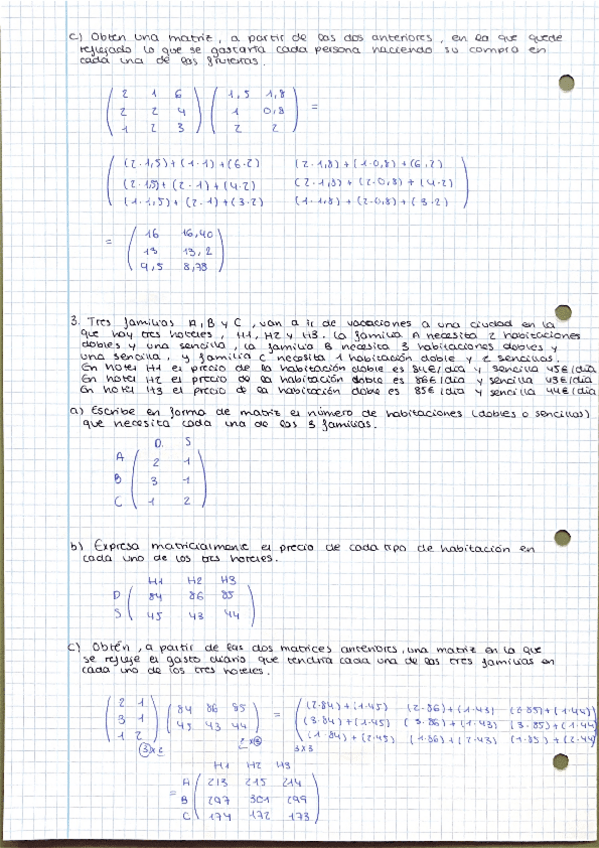 c) Obtén una matriz, a partir de las dos anteriores, en la que quede
reflejado lo que se gastaría cada persona haciendo su compra en
cada una de las fruterías.
( 2 1 6 ) ( 1,5 1,8 )
( 2 2 4 ) ( 1 0,8 ) =
( 1 2 3 ) ( 2 2 )
(2·1,5)+(1·1)+(6·2) (2·1,8)+(1·0,8)+(6·2)
(2·1,5)+(2·1)+(4·2) (2·1,8)+(2·0,8)+(4·2)
(1·1,5)+(2·1)+(3·2) (1·1,8)+(2·0,8)+(3·2)
( 16 16,40 )
= ( 13 13,2 )
( 9,5 8,78 )
3. Tres familias A, B y C, van a ir de vacaciones a una ciudad en la
que hay tres hoteles, H1, H2 y H3. La familia A necesita 2 habitaciones
dobles y una sencilla, la familia B necesita 3 habitaciones dobles y
una sencilla, y familia C necesita 1 habitación doble y 2 sencillas.
En hotel H1 el precio de la habitación doble es 84€/día y sencilla 45€/día
En hotel H2 el precio de la habitación doble es 86€/día y sencilla 43€/día
En hotel H3 el precio de la habitación doble es 85€/día y sencilla 44€/día
a) Escribe en forma de matriz el número de habitaciones (dobles o sencillas)
que necesita cada una de las 3 familias.
D. S
A ( 2 1 )
B ( 3 1 )
C ( 1 2 )
b) Expresa matricialmente el precio de cada tipo de habitación en
cada uno de los tres hoteles.
H1 H2 H3
D ( 84 86 85 )
S ( 45 43 44 )
c) Obtén, a partir de las dos matrices anteriores, una matriz en la que
se refleje el gasto diario que tendría cada una de las tres familias en
cada uno de los tres hoteles.
( 2 1 ) ( 84 86 85 ) = ( (2·84)+(1·45) (2·86)+(1·43) (2·85)+(1·44)
( 3 1 ) ( 45 43 44 ) (3·84)+(1·45) (3·86)+(1·43) (3·85)+(1·44)
( 1 2 ) (1·84)+(2·45) (1·86)+(2·43) (1·85)+(2·44)
3×2 2×3 3×3
H1 H2 H3
A ( 213 215 214 )
= B ( 297 301 299 )
C ( 174 172 173 )